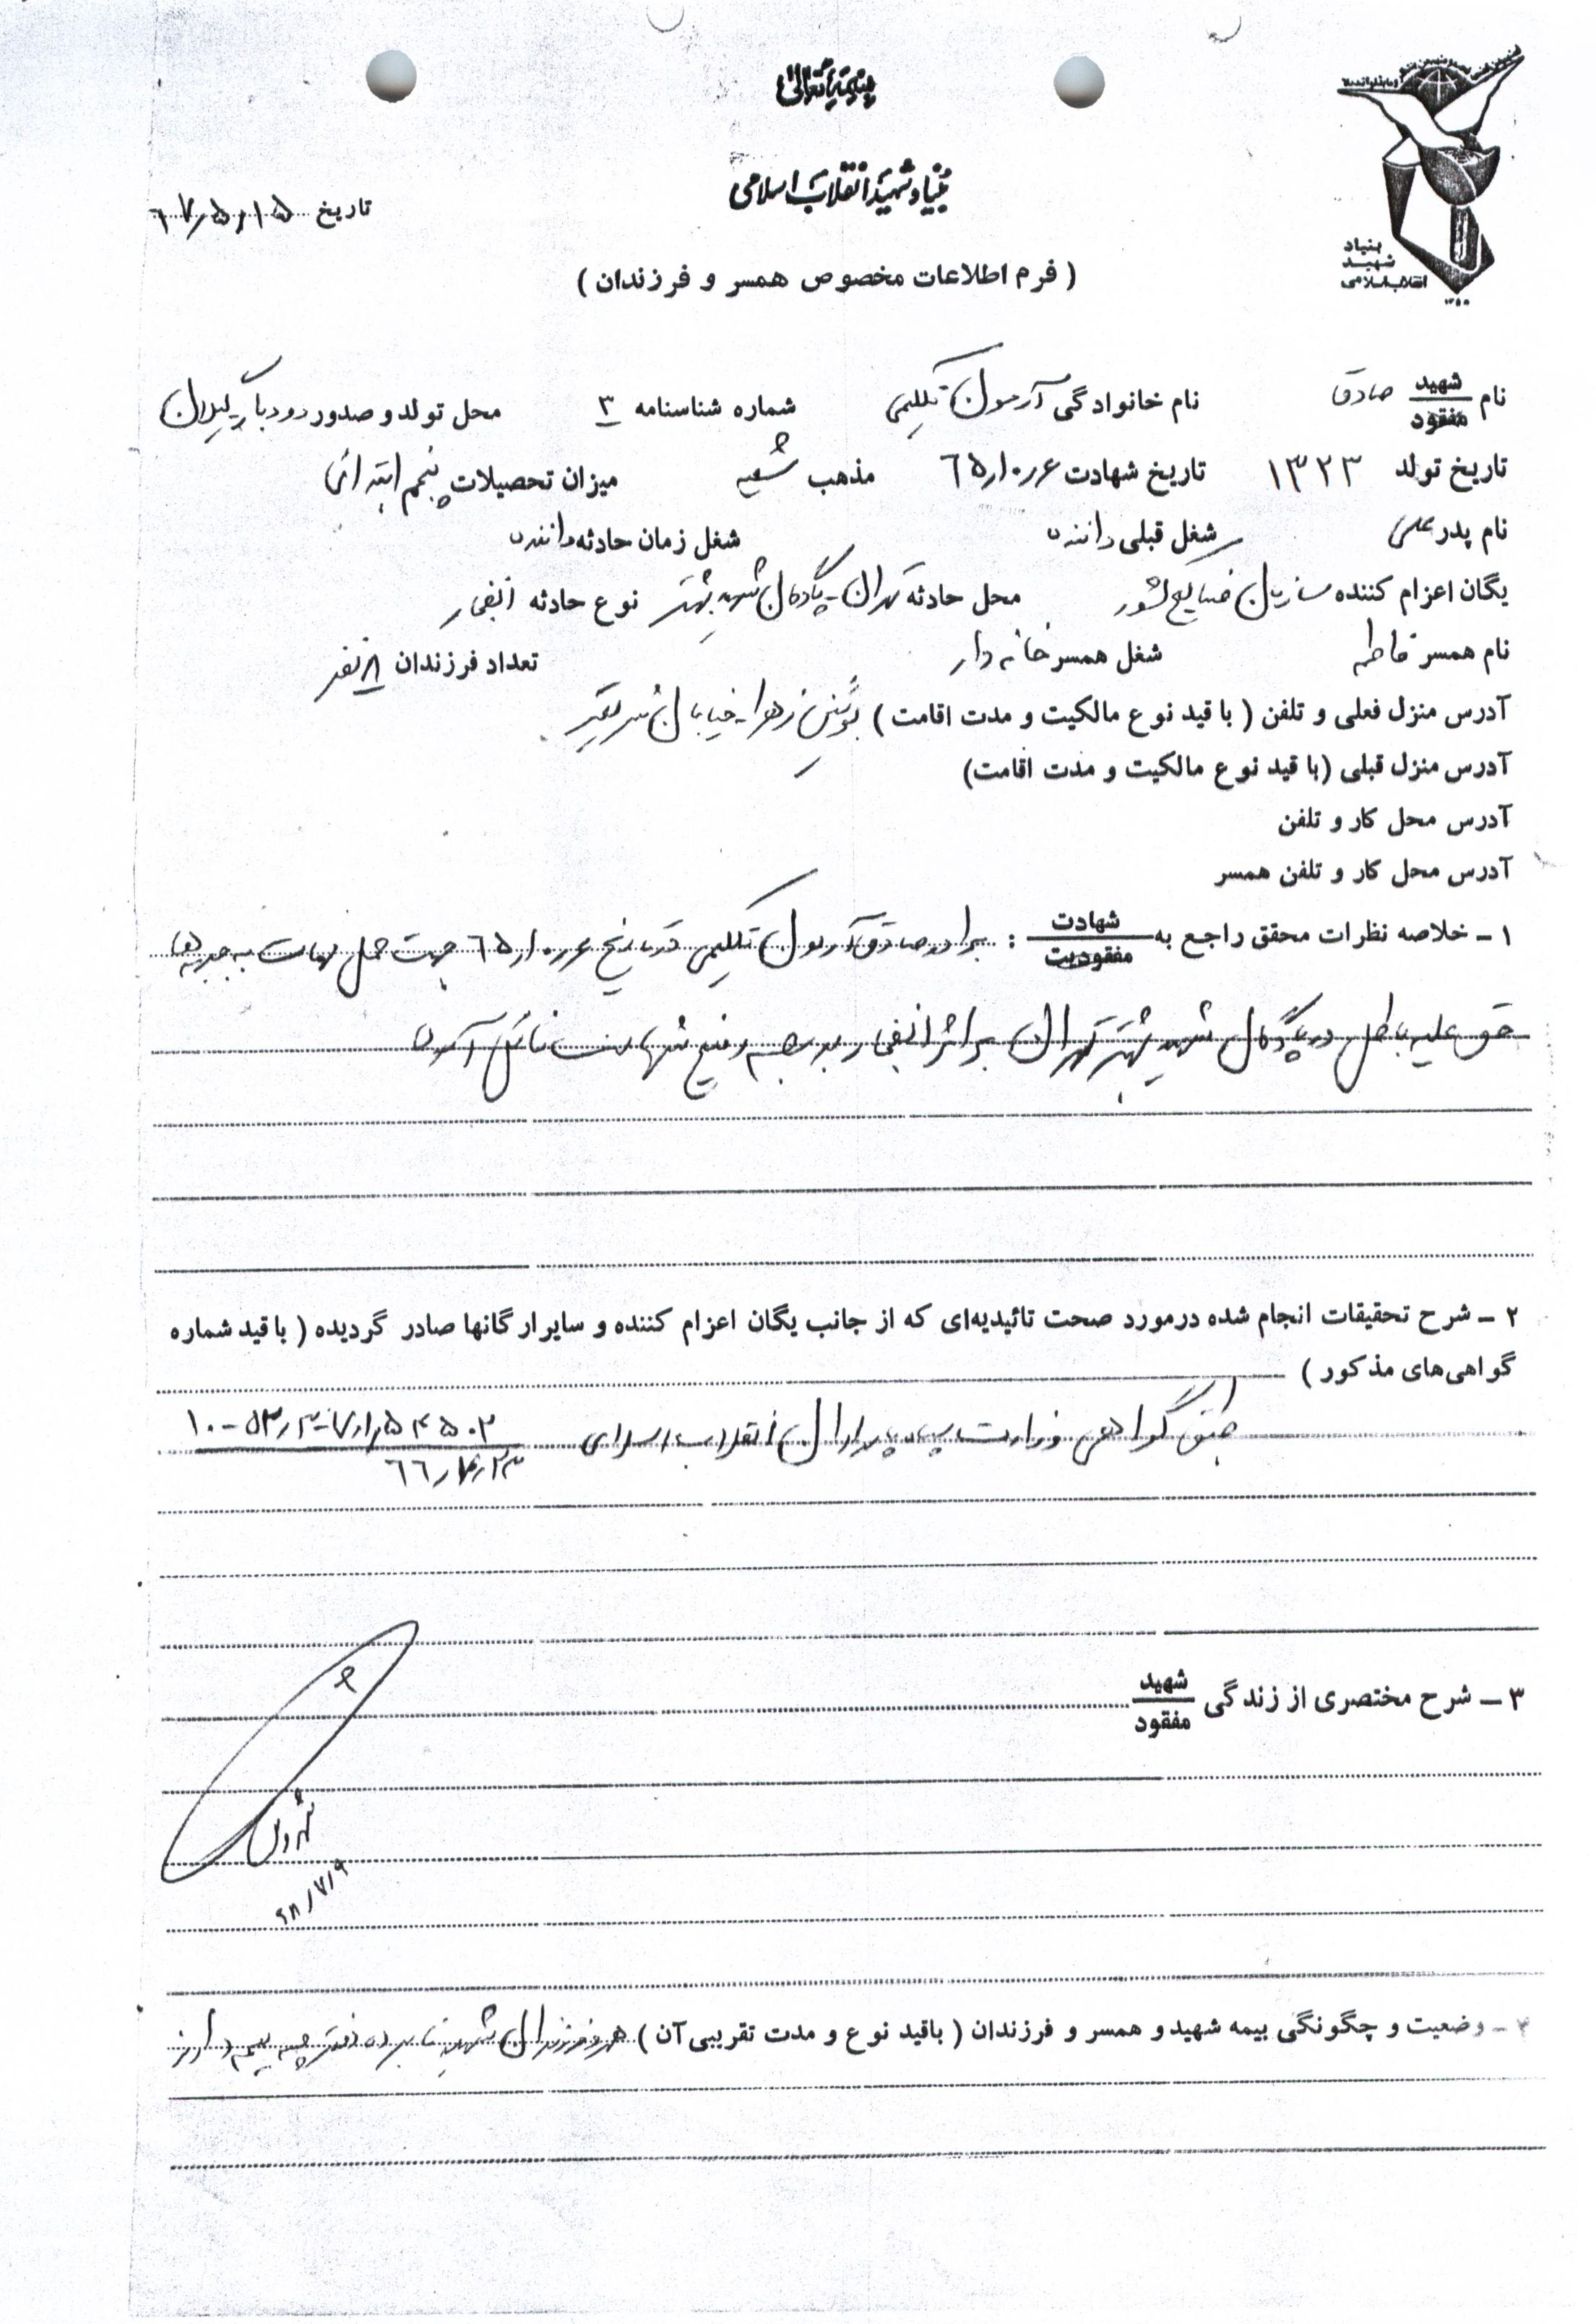 بسمه تعالی
بنیاد شهید انقلاب اسلامی
تاریخ ۶۷/۵/۱۵
بنیاد
شهید
انقلاب اسلامی
( فرم اطلاعات مخصوص همسر و فرزندان )
نام شهید / مفقود صادق نام خانوادگی آرمون تکلیمی شماره شناسنامه ۳ محل تولد و صدور رودبار گیلان
تاریخ تولد ۱۳۲۳ تاریخ شهادت ۶۵/۱۰/۶ مذهب شیعه میزان تحصیلات پنجم ابتدائی
نام پدر علی شغل قبلی راننده شغل زمان حادثه راننده
یگان اعزام کننده سازمان صنایع کشور محل حادثه تهران - پادگان شهید بهشتی نوع حادثه انفجار
نام همسر فاطمه شغل همسر خانه دار تعداد فرزندان ۸ نفر
آدرس منزل فعلی و تلفن ( با قید نوع مالکیت و مدت اقامت ) بوئین زهرا - خیابان شریعتی
آدرس منزل قبلی (با قید نوع مالکیت و مدت اقامت)
آدرس محل کار و تلفن
آدرس محل کار و تلفن همسر
۱ - خلاصه نظرات محقق راجع به شهادت / مفقودیت : برادر صادق آرمون تکلیمی در تاریخ ۶۵/۱۰/۶ جهت حمل مهمات به جبهه‌های
حق علیه باطل در پادگان شهید بهشتی تهران بر اثر انفجار به درجه رفیع شهادت نائل آمده
۲ - شرح تحقیقات انجام شده درمورد صحت تائیدیه‌ای که از جانب یگان اعزام کننده و سایر ارگانها صادر گردیده ( با قید شماره
گواهی‌های مذکور )
طبق گواهی وزارت سپاه پاسداران انقلاب اسلامی
۳ - شرح مختصری از زندگی شهید / مفقود
۶۸/۷/۹
۴ - وضعیت و چگونگی بیمه شهید و همسر و فرزندان ( باقید نوع و مدت تقریبی آن ) فرزندان شهید نامبرده دفترچه بیمه دارند